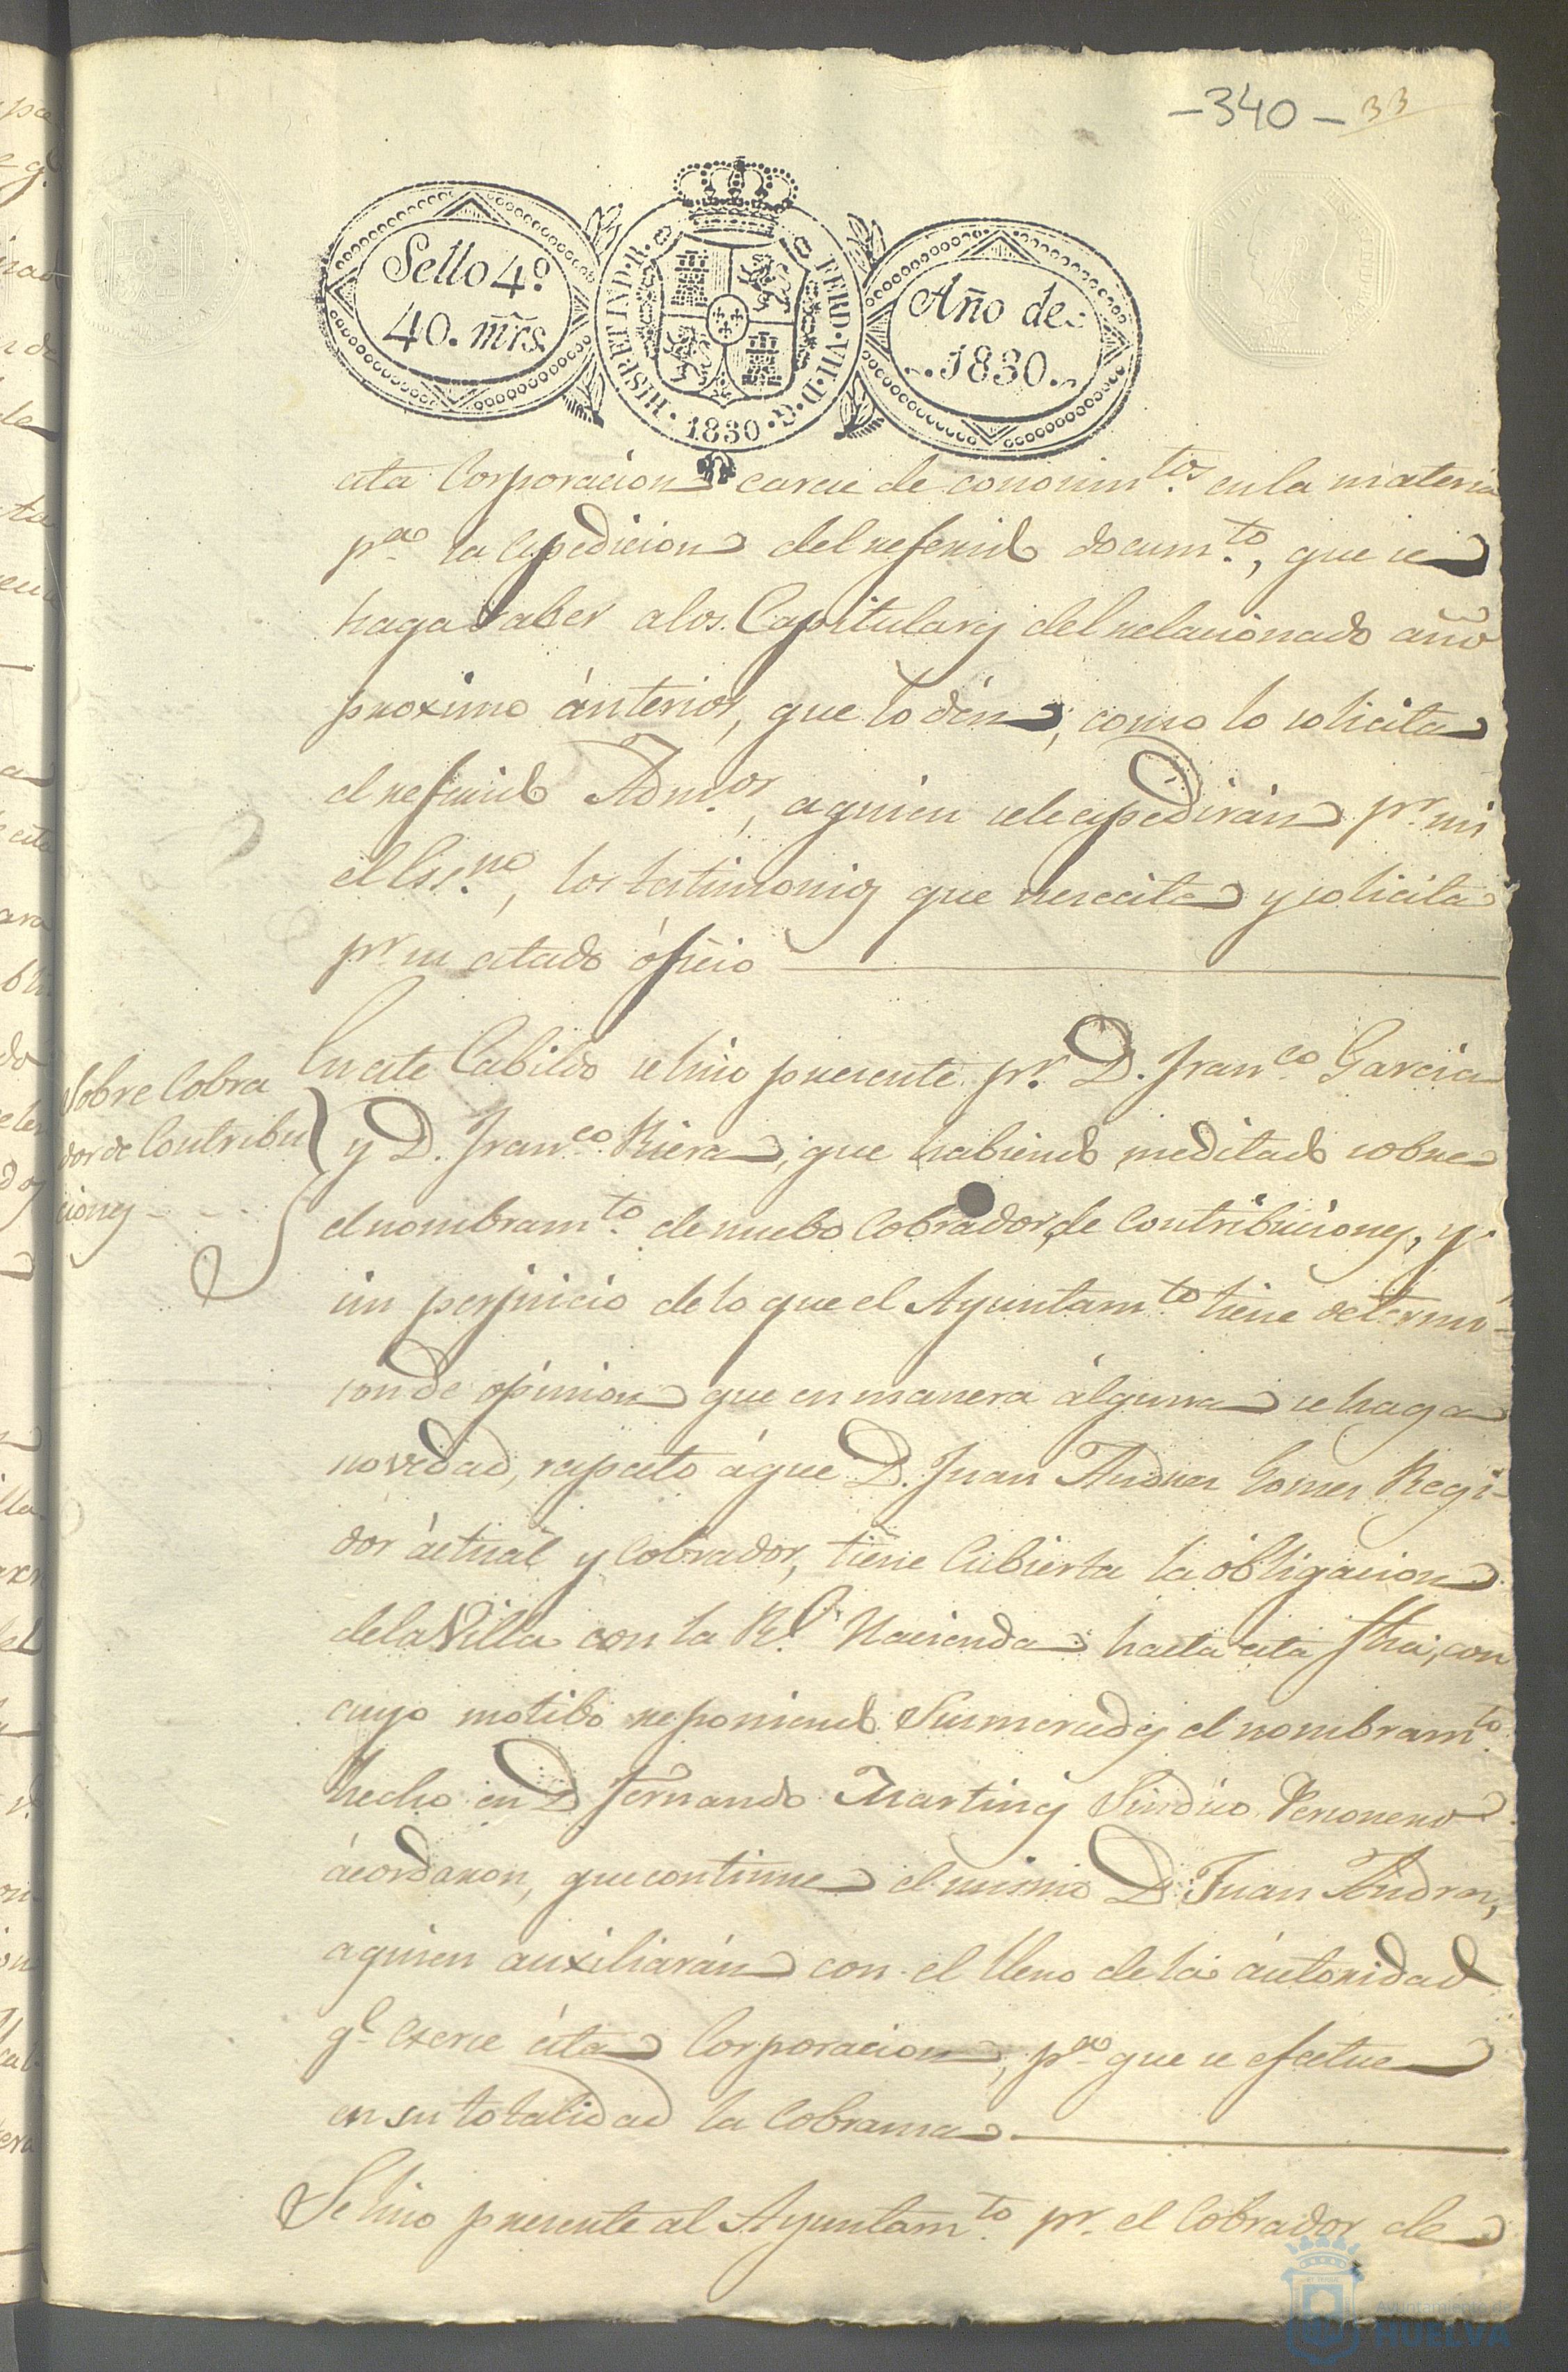 -340- 33
Sello 4º
40. mrs.
HISP. ET IND. R. FERD. VII. D. G. 1830
Año de
1830.
esta Corporacion carece de conocimtos. en la materia
pa. la espedicion del referido documto., que se
haga saber a los Capitulares del relacionado año
proximo ánterior, que lo dén, como lo solicita
el referido Admor., a quien se le espedirán pr. mi
el Essno., los testimonios que necesita y solicita
pr. su citado óficio
Sobre Cobra
dor de Contribu
ciones
En este Cabildo se hizo presente pr. D. Franco. Garcia
y D. Franco. Riera, que habiendo meditado sobre
el nombramto. de nuebo Cobrador, de Contribuciones, y
sin perjuicio de lo que el Ayuntamto. tiene determi-
son de opinion que en manera álguna se haga
novedad, respecto á que D. Juan Andres Gomez Regi-
dor áctual y Cobrador, tiene Cubierta la obligacion
de la Villa con la Rl. Hacienda hasta esta fha, con
cuyo motibo reponiendo Sus mercedes el nombramto.
hecho en D Fernando Martines Sindico Personero
ácordaron, que continue el mismo D. Juan Andres,
a quien auxiliarán con el lleno de la áutoridad
qe. exerce ésta Corporacion, pa. que se efectue
en su totalidad la Cobranza
Se hizo presente al Ayuntamto. pr. el Cobrador de
Ayuntamiento de
HUELVA